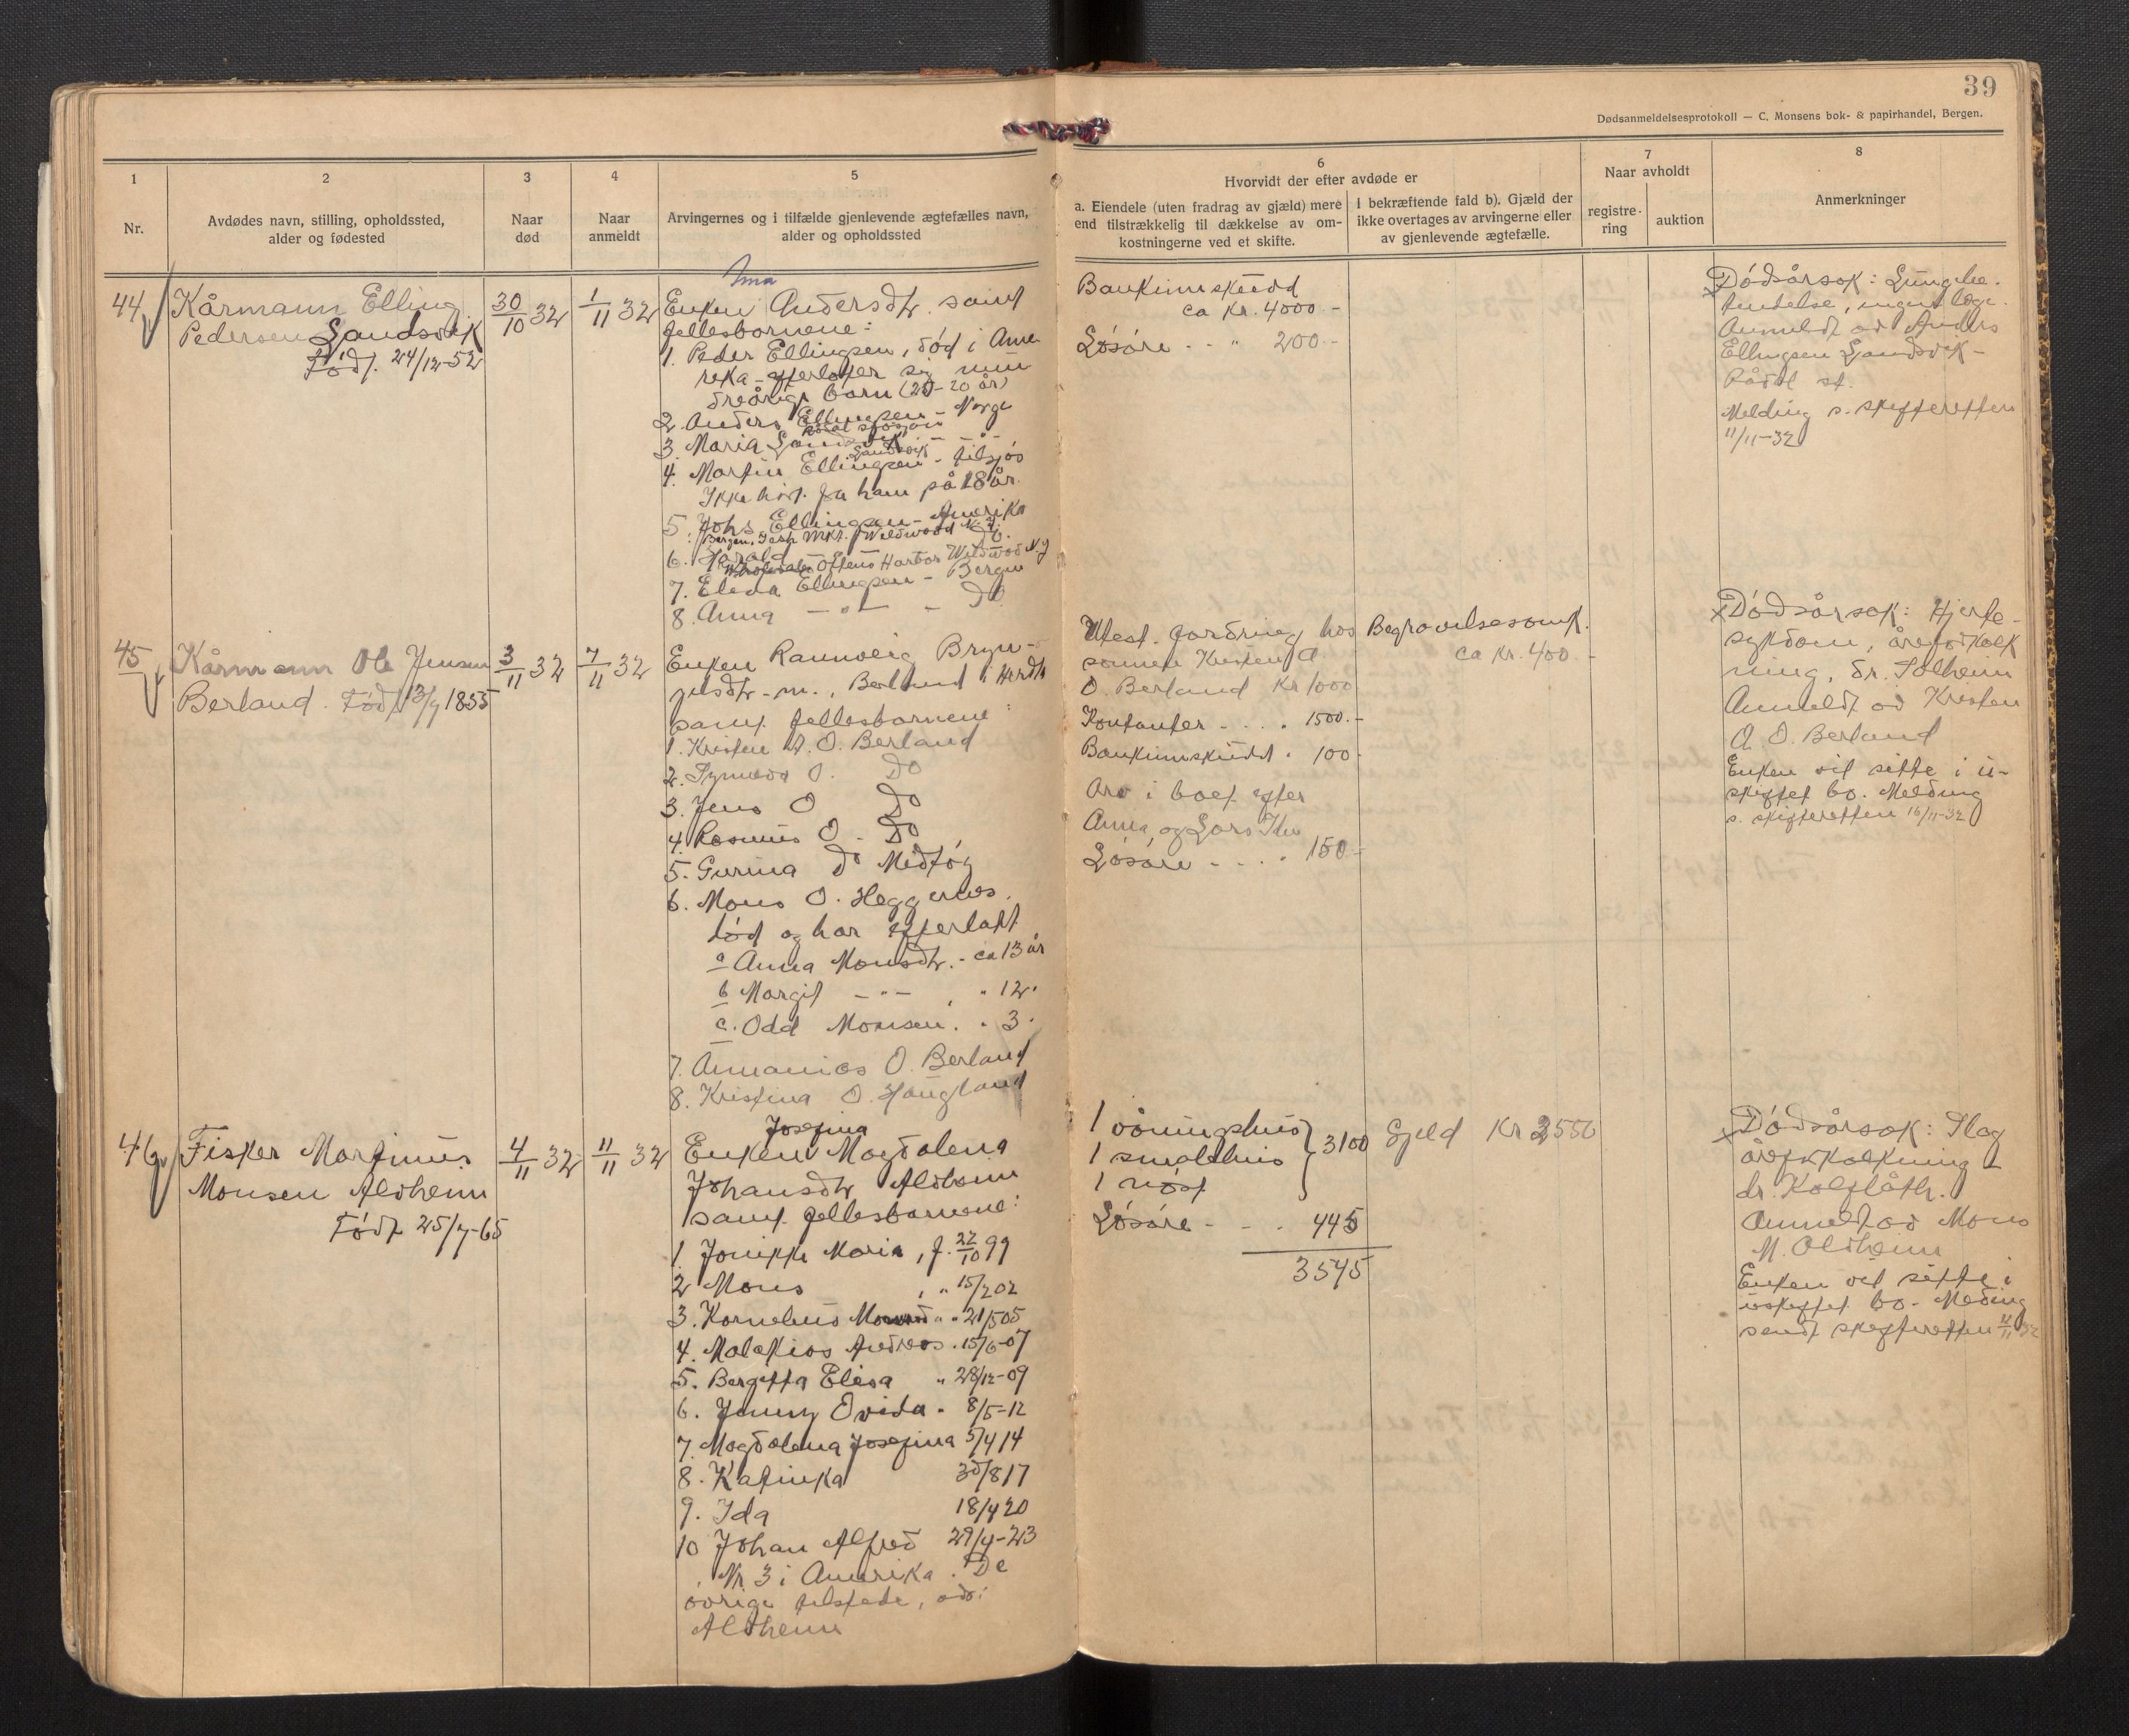 39
Dødsanmeldelsesprotokoll — C. Monsens bok- & papirhandel, Bergen.
1
Nr.
2
Avdødes navn, stilling, opholdssted,
alder og fødested
3
Naar
død
4
Naar
anmeldt
5
Arvingernes og i tilfælde gjenlevende ægtefælles navn,
alder og opholdssted
6
Hvorvidt der efter avdøde er
a. Eiendele (uten fradrag av gjæld) mere
end tilstrækkelig til dækkelse av om-
kostningerne ved et skifte.
I bekræftende fald b). Gjæld der
ikke overtages av arvingerne eller
av gjenlevende ægtefælle.
7
Naar avholdt
registre-
ring
auktion
8
Anmerkninger
44
Kårmann Elling
Pedersen Sandsvik
Født 24/12-52
30/10 32
1/11 32
Enken Andersdtr. samt
fellesbornene:
1. Peder Ellingsen, død i Ame
reka - efterlater sig min
dreårige barn (20-20 år)
2. Anders Ellingsen - Norge
3. Maria
4. Martin Ellingsen - tilsjøs
Ikke hørt fra ham på 18 år.
5. Johs Ellingsen - Amerika
Wildwood N.J.
6. Harald Do.
Ottens Harbor Wildwood N.J
7. Elida Ellingsen - Bergen
8. Anna — " — - Do
Bankinnskudd
ca kr. 4000.-
Løsøre - - " 200.-
Dødsårsak: Lungebe-
tendelse, ingen læge.
Anmeldt av Anders
Ellingsen Sandsvik -
Rådal st.
Melding s. skifteretten
11/11-32
45
Kårmann Ole Jensen
Berland. Født 13/9 1855
3/11 32
7/11 32
Enken Rannveig Bryn-
jelsdtr - m., Berland i Herdla
samt fellesbarnene:
1. Kristen A. O. Berland
2. Synneva O. Do
3. Jens O Do
4. Rasmus O - Do
5. Gurina Do Midtøy
6. Mons O. Heggernes.
død og har efterlatt
a Anna Monsdtr. - ca 13 år
b Margit — " — , " 12.
c. Odd Monsen. " 3.
7. Annanias O. Berland
8. Kristina O. Haugland
Utest. fordring hos
sønnen Kristen A
O. Berland Kr 1000
Kontanter - . . . 1500.-
Bankinnskudd . 100.-
Arv i boet efter
Anna og Lars
Løsøre - . . . 150.-
Begravelsesomk.
ca kr. 400.-
Dødsårsak: Hjerte-
sykdom, åreforkalk
ning, dr. Solheim
Anmeldt av Kristen
A. O. Berland
Enken vil sitte i u-
skiftet bo. Melding
s. skifteretten 16/11-32
46
Fisker Martinus
Monsen Alvheim
Født 25/7-65
4/11 32
11/11 32
Josefina
Enken Magdalena
Johansdtr Alvheim
samt fellesbarnene:
1. Jonikke Maria, f. 22/10 99
2 Mons , " 15/2 02
3. Kornelius " 21/5 05
4. Malakias Andreas . 15/6-07
5. Bergitta Elisa " 28/12-09
6. Jenny Ovida - 8/5-12
7. Magdalena Josefina 5/4 14
8. Katinka 30/8 17
9. Ida 18/4 20
10 Johan Alfred 29/4-23
Nr 3 i Amerika. De
øvrige tilstede, adr:
Alvheim
1 våningshus
1 smalehus
1 nøst
3100
Løsøre - - . 445
3545
Gjeld Kr 2550
Dødsårsak: Slag
åreforkalkning -
dr. Kolflåth.
Anmeldt av Mons
M. Alvheim
Enken vil sitte i
uskiftet bo. Melding
sendt skifteretten 11/11-32